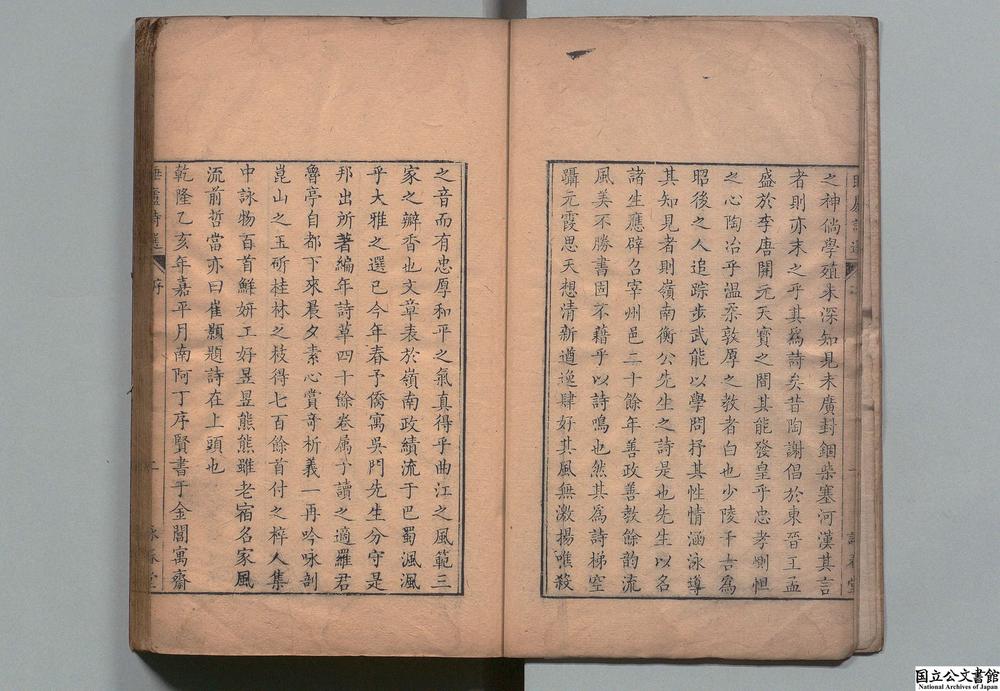 之神倘學殖未深知見未廣封錮柴塞河漢其言
者則亦末之乎其為詩矣昔陶謝倡於東晉王孟
盛於李唐開元天寶之間其能發皇乎忠孝惻怛
之心陶冶乎溫柔敦厚之教者白也少陵千古為
昭後之人追踪步武能以學問抒其性情涵泳導
其知見者則嶺南衡公先生之詩是也先生以名
諸生應辟召宰州邑二十餘年善政善教餘韵流
風美不勝書固不藉乎以詩鳴也然其為詩梯空
躡元霞思天想清新遒逸肆好其風無激揚唯殺
之音而有忠厚和平之氣真得乎曲江之風範三
家之瓣香也文章表於嶺南政績流于巴蜀渢渢
乎大雅之選已今年春予僑寓吳門先生分守是
邦出所著編年詩草四十餘卷属予讀之適羅君
魯亭自都下來晨夕素心賞奇析義一再吟咏剖
崑山之玉斫桂林之枝得七百餘首付之梓人集
中詠物百首鮮妍工好昱昱熊熊雖老宿名家風
流前哲當亦曰崔顥題詩在上頭也
乾隆乙亥年嘉平月南阿丁序賢書于金閶寓齋
詩選
序
二
詠春堂
国立公文書館
National Archives of Japan